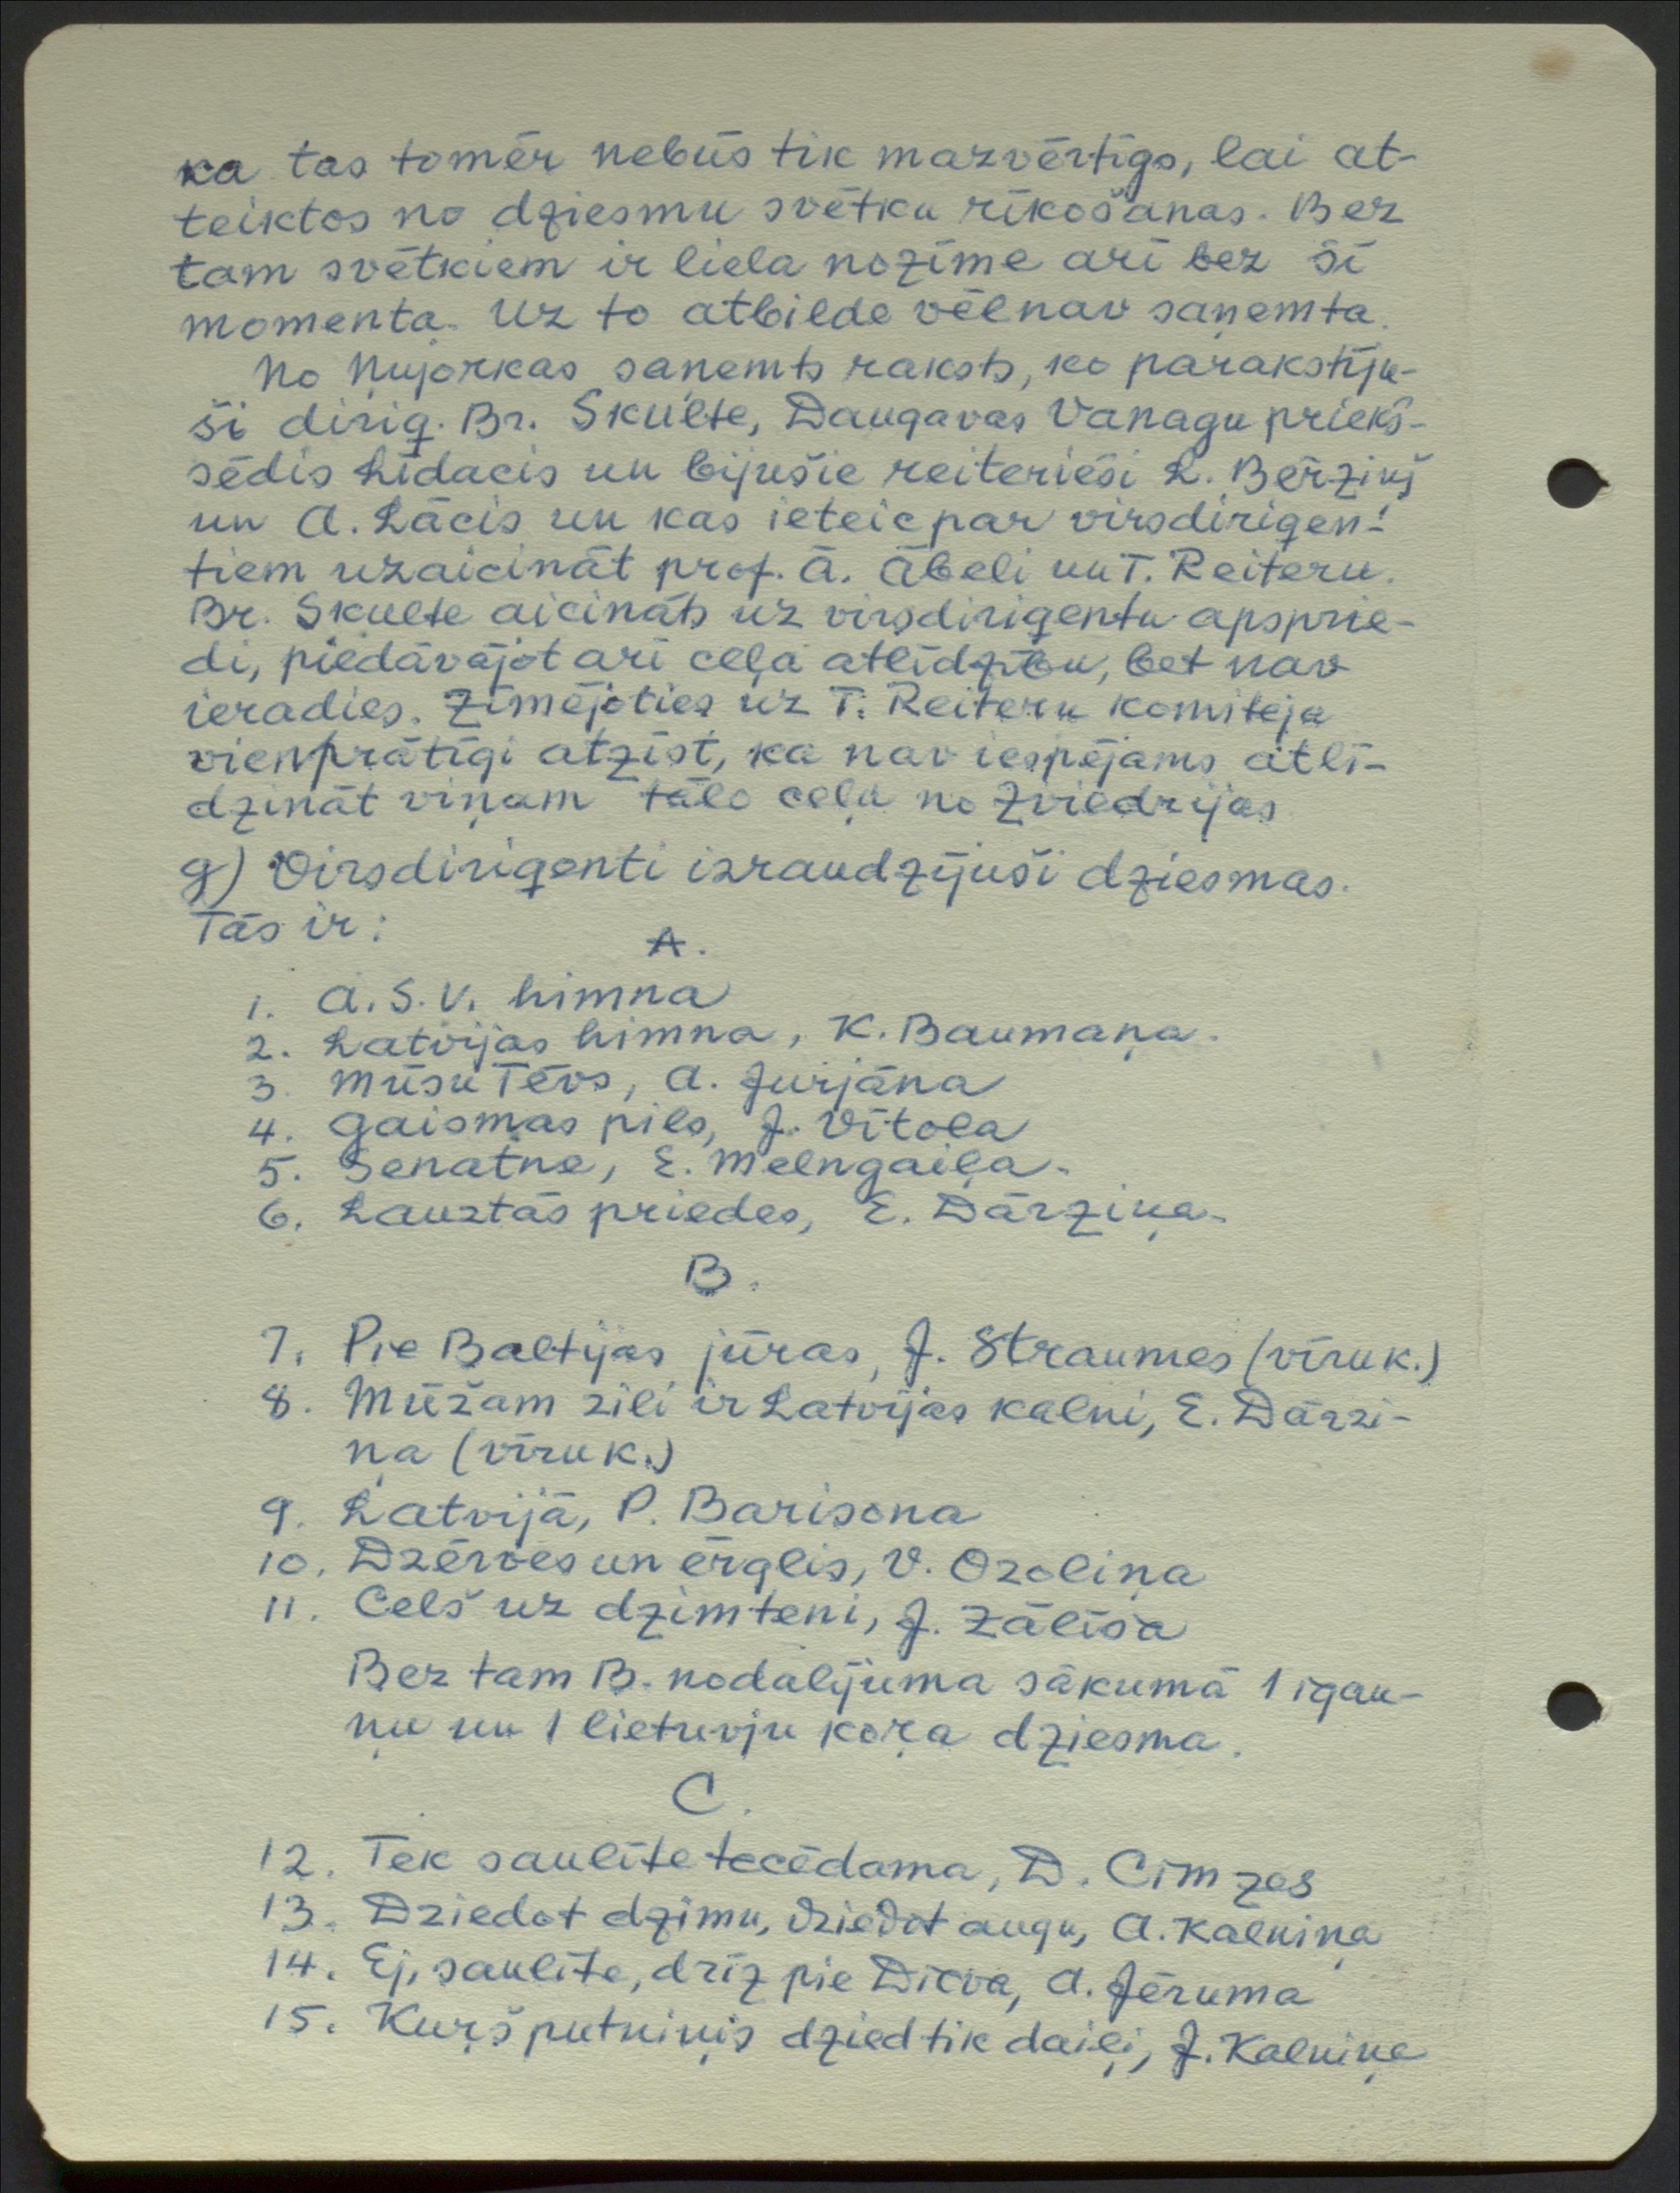 ka tas tomēr nebūs tik mazvērtīgs, lai at-
teiktos no dziesmu svētku rīkošanas. Bez
tam svētkiem ir liela nozīme arī bez šī
momenta. Uz to atbilde vēl nav saņemta.
No Ņujorkas saņemts raksts, ko parakstīju-
ši diriģ. Br. Skulte, Daugavas Vanagu priekš-
sēdis Līdacis un bijušie reiterieši L. Bērziņš
un A. Lācis un kas ieteic par virsdiriģen-
tiem uzaicināt prof. Ā. Ābeli un T. Reiteru.
Br. Skulte aicināts uz virsdiriģentu apsprie-
di, piedāvājot arī ceļa atlīdzību, bet nav
ieradies. Zīmējoties uz T. Reiteru komiteja
vienprātīgi atzīst, ka nav iespējams atlī-
dzināt viņam tālo ceļu no Zviedrijas
g) Virsdiriģenti izraudzījuši dziesmas.
Tās ir:
A.
1. A.S.V. himna
2. Latvijas himna, K. Baumaņa.
3. Mūsu Tēvs, A. Jurjāna
4. Gaismas pils, J. Vītola
5. Senatne, E. Melngaiļa.
6. Lauztās priedes, E. Dārziņa.
B.
7. Pie Baltijas jūras, J. Straumes (vīru k.)
8. Mūžam zili ir Latvijas kalni, E. Dārzi-
ņa (vīru k.)
9. Latvijā, P. Barisona
10. Dzērves un ērglis, V. Ozoliņa
11. Celš uz dzimteni, J. Zālīša
Bez tam B. nodalījuma sākumā 1 igau-
ņu un 1 lietuvju koŗa dziesma.
C.
12. Tek saulīte tecēdama, D. Cimzes
13. Dziedot dzimu, dziedot augu, A. Kalniņa
14. Ej, saulīte, drīz pie Dieva, A. Jēruma
15. Kuŗš putniņis dzied tik daiļi, J. Kalniņa